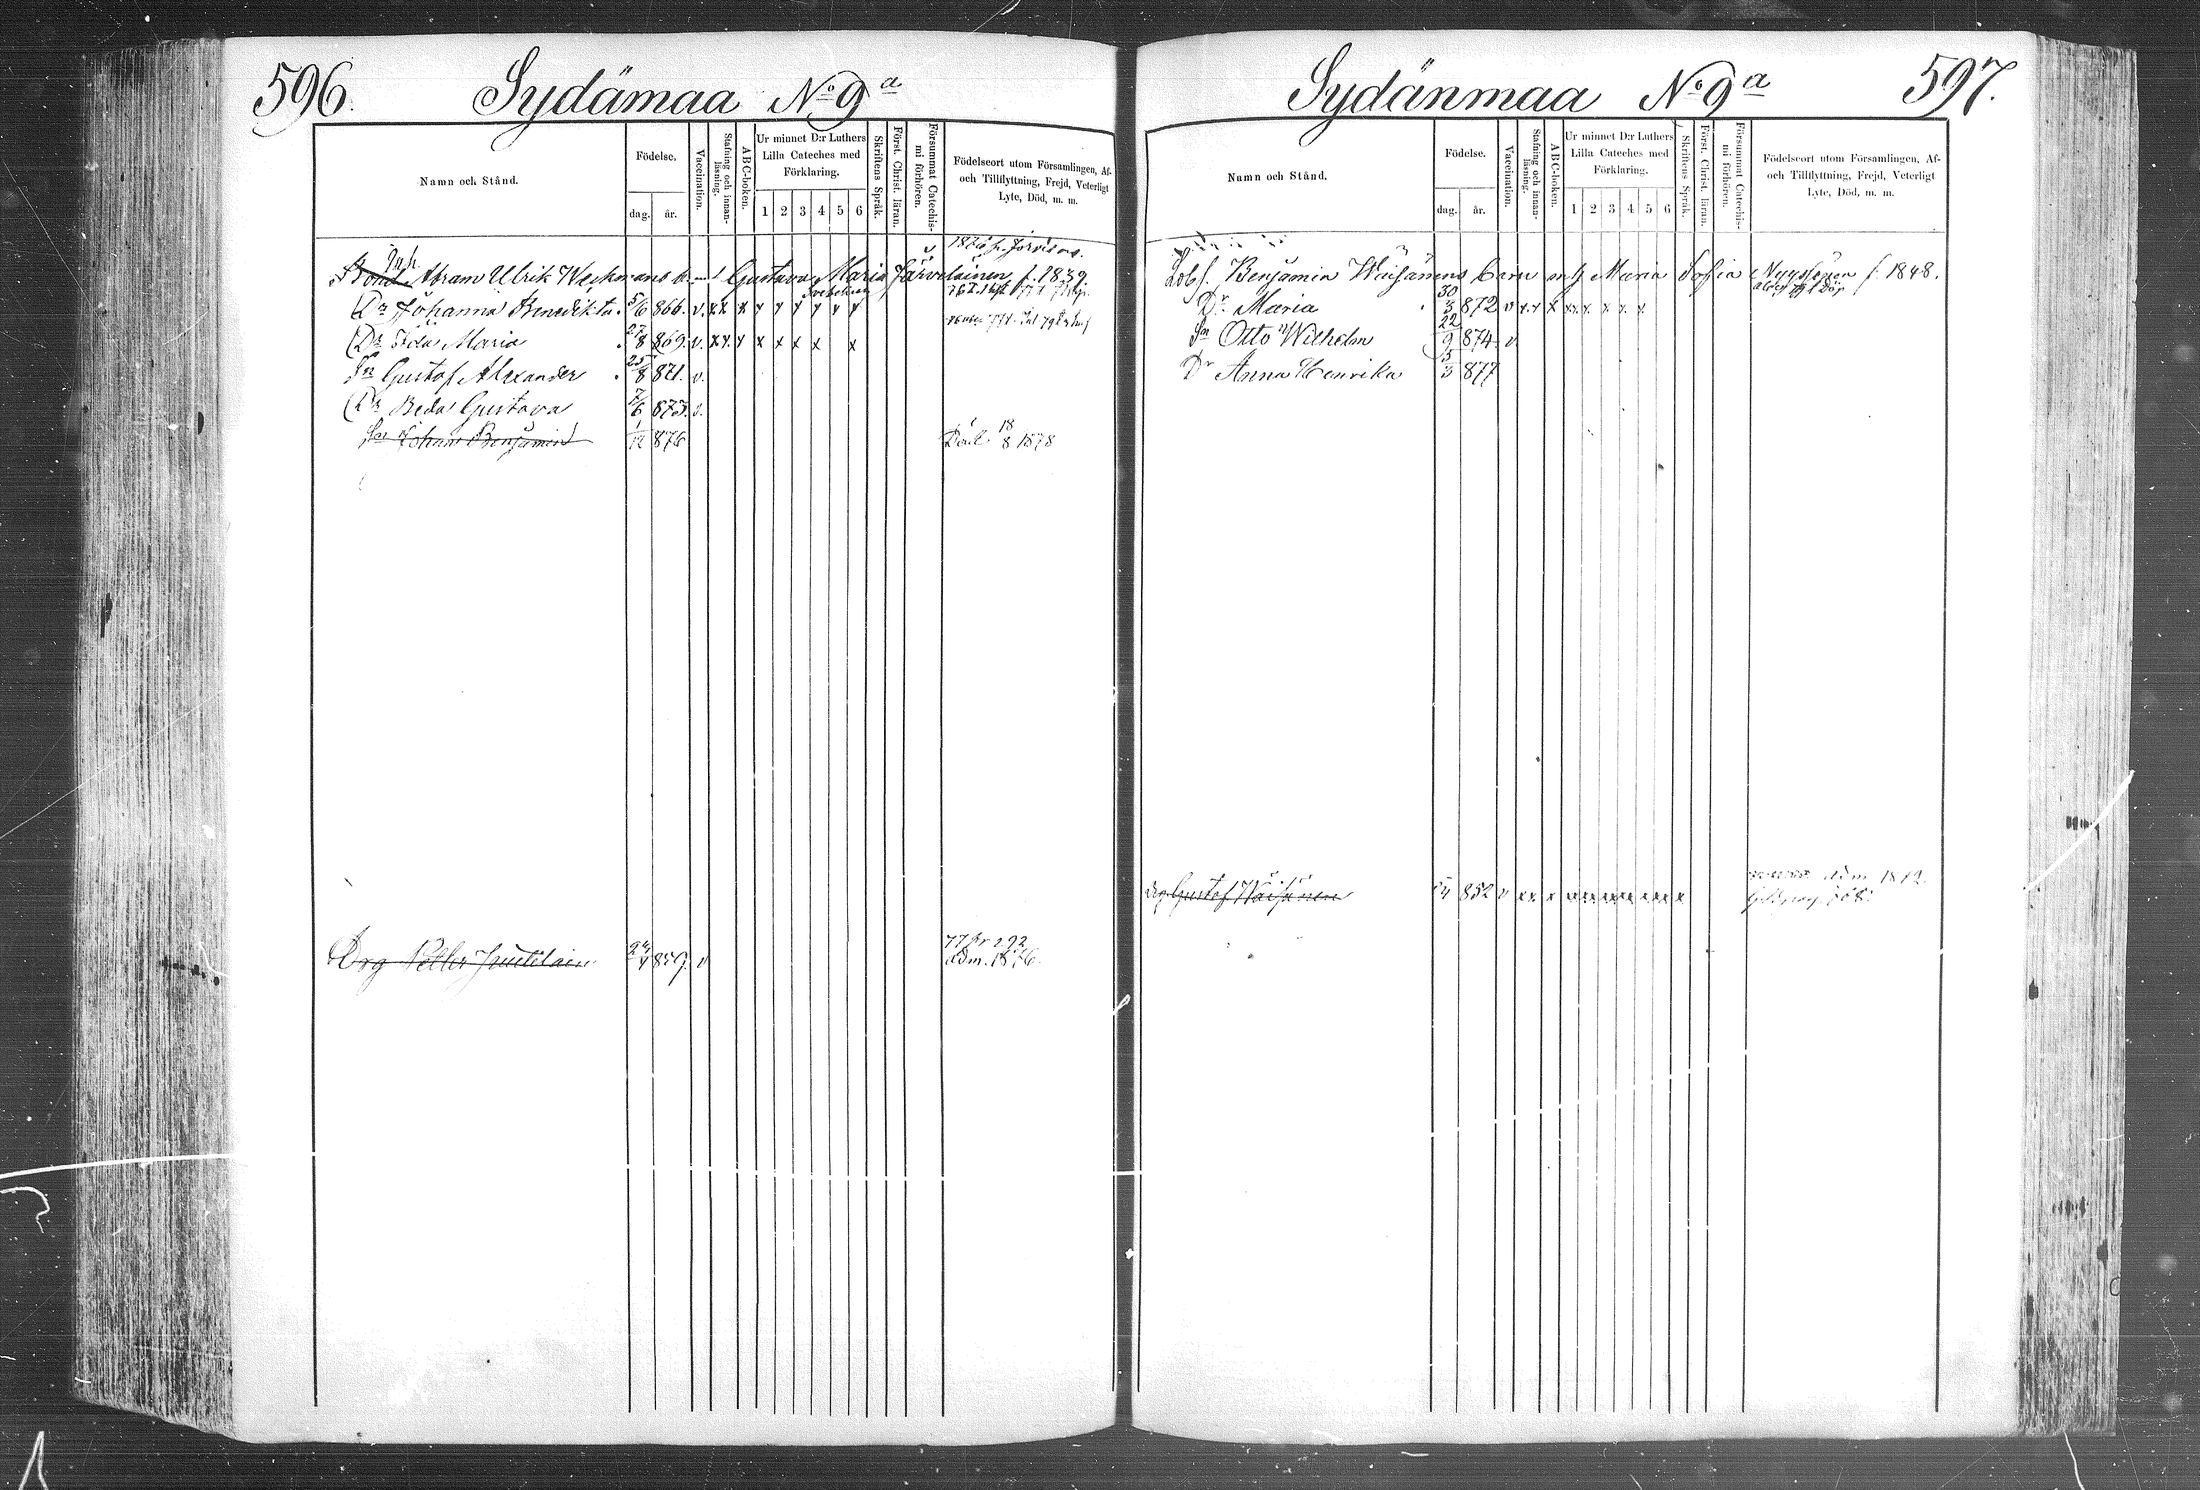 596. Sydämaa No 9 a
Namn och Stånd.
Födelse.
dag. år.
Vaccination.
Stafning och innanläsning.
ABC-boken.
Ur minnet D:r Luthers Lilla Cateches med Förklaring.
1 2 3 4 5 6
Skriftens Språk.
Först. Christ. läran.
Försummat Catechismi förhören.
Födelseort utom Församlingen, Af- och Tillflyttning, Frejd, Veterligt Lyte, Död, m. m.
Abram Ulrik Weckmans b. m. Gustava Maria Järveläinen f. 1839
Dr Johanna Benedikta 5/6 866. v. x x x x x x x x x
Dr Ida Maria 27/8 869. v. x x x x x x x x
Sn Gustaf Alexander 25/8 871. v.
Dr Beda Gustava 7/6 873. v.
Sn Johan Benjamin 1/12 876 Död 18/8 1878
Drg Petter 24/4 859. v 77 fr 292
adm. 1876.
Sydänmaa No 9 a 597.
Namn och Stånd.
Födelse.
dag. år.
Vaccination.
Stafning och innanläsning.
ABC-boken.
Ur minnet D:r Luthers Lilla Cateches med Förklaring.
1 2 3 4 5 6
Skriftens Språk.
Först. Christ. läran.
Försummat Catechismi förhören.
Födelseort utom Församlingen, Af- och Tillflyttning, Frejd, Veterligt Lyte, Död, m. m.
Benjamin Wäisänens barn m. h. Maria Sofia Nyyssönen f. 1848.
Dr Maria 30/3 872 v x x x x x x x x
Sn Otto Wilhelm 22/9 874 v
Dr Anna Henrika 5/3 877
Drg Gustaf Wäisänen 852 v x x x adm 1872.